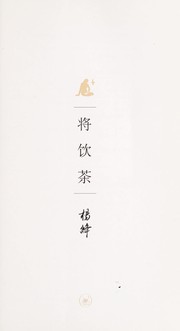 将饮茶
杨绛